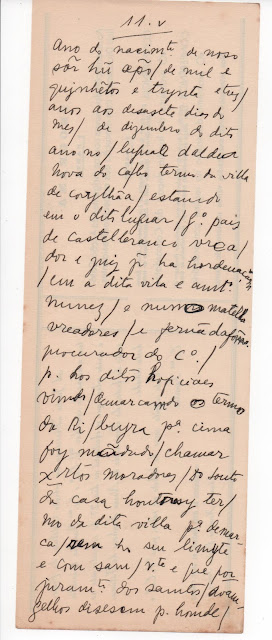 11.v
Ano do nacimtº de noso
sõr hũ xpõ / de mil e
quinhẽtos e trynta etres /
anos aos desasete dias do
mes / de dezembro do dito
ano no / luguar daldea
nova do cabo termo da villa
de covylhãa / estando
em o dito luguar / Jº. pais
de castellbranco vrea /
dor e juiz pª ha hordenaçã
/ em a dita vila e amtº.
nunes / e nuno matella
vreadores / e fernã dafõseca
procurador do Cº. /
p. hos ditos hoficiaes
vimdo / demarcamdo os termos
da Ri / beyra pª. cima
foy mãdado / chamar
xrtºs moradores / do souto
da casa houtrosy ter /
mo da dita villa pª. demar
ca / rem ho seu limyte
e com sam / vte e que por
juramtº. dos santos / avam
gelhos disesem p. honde /